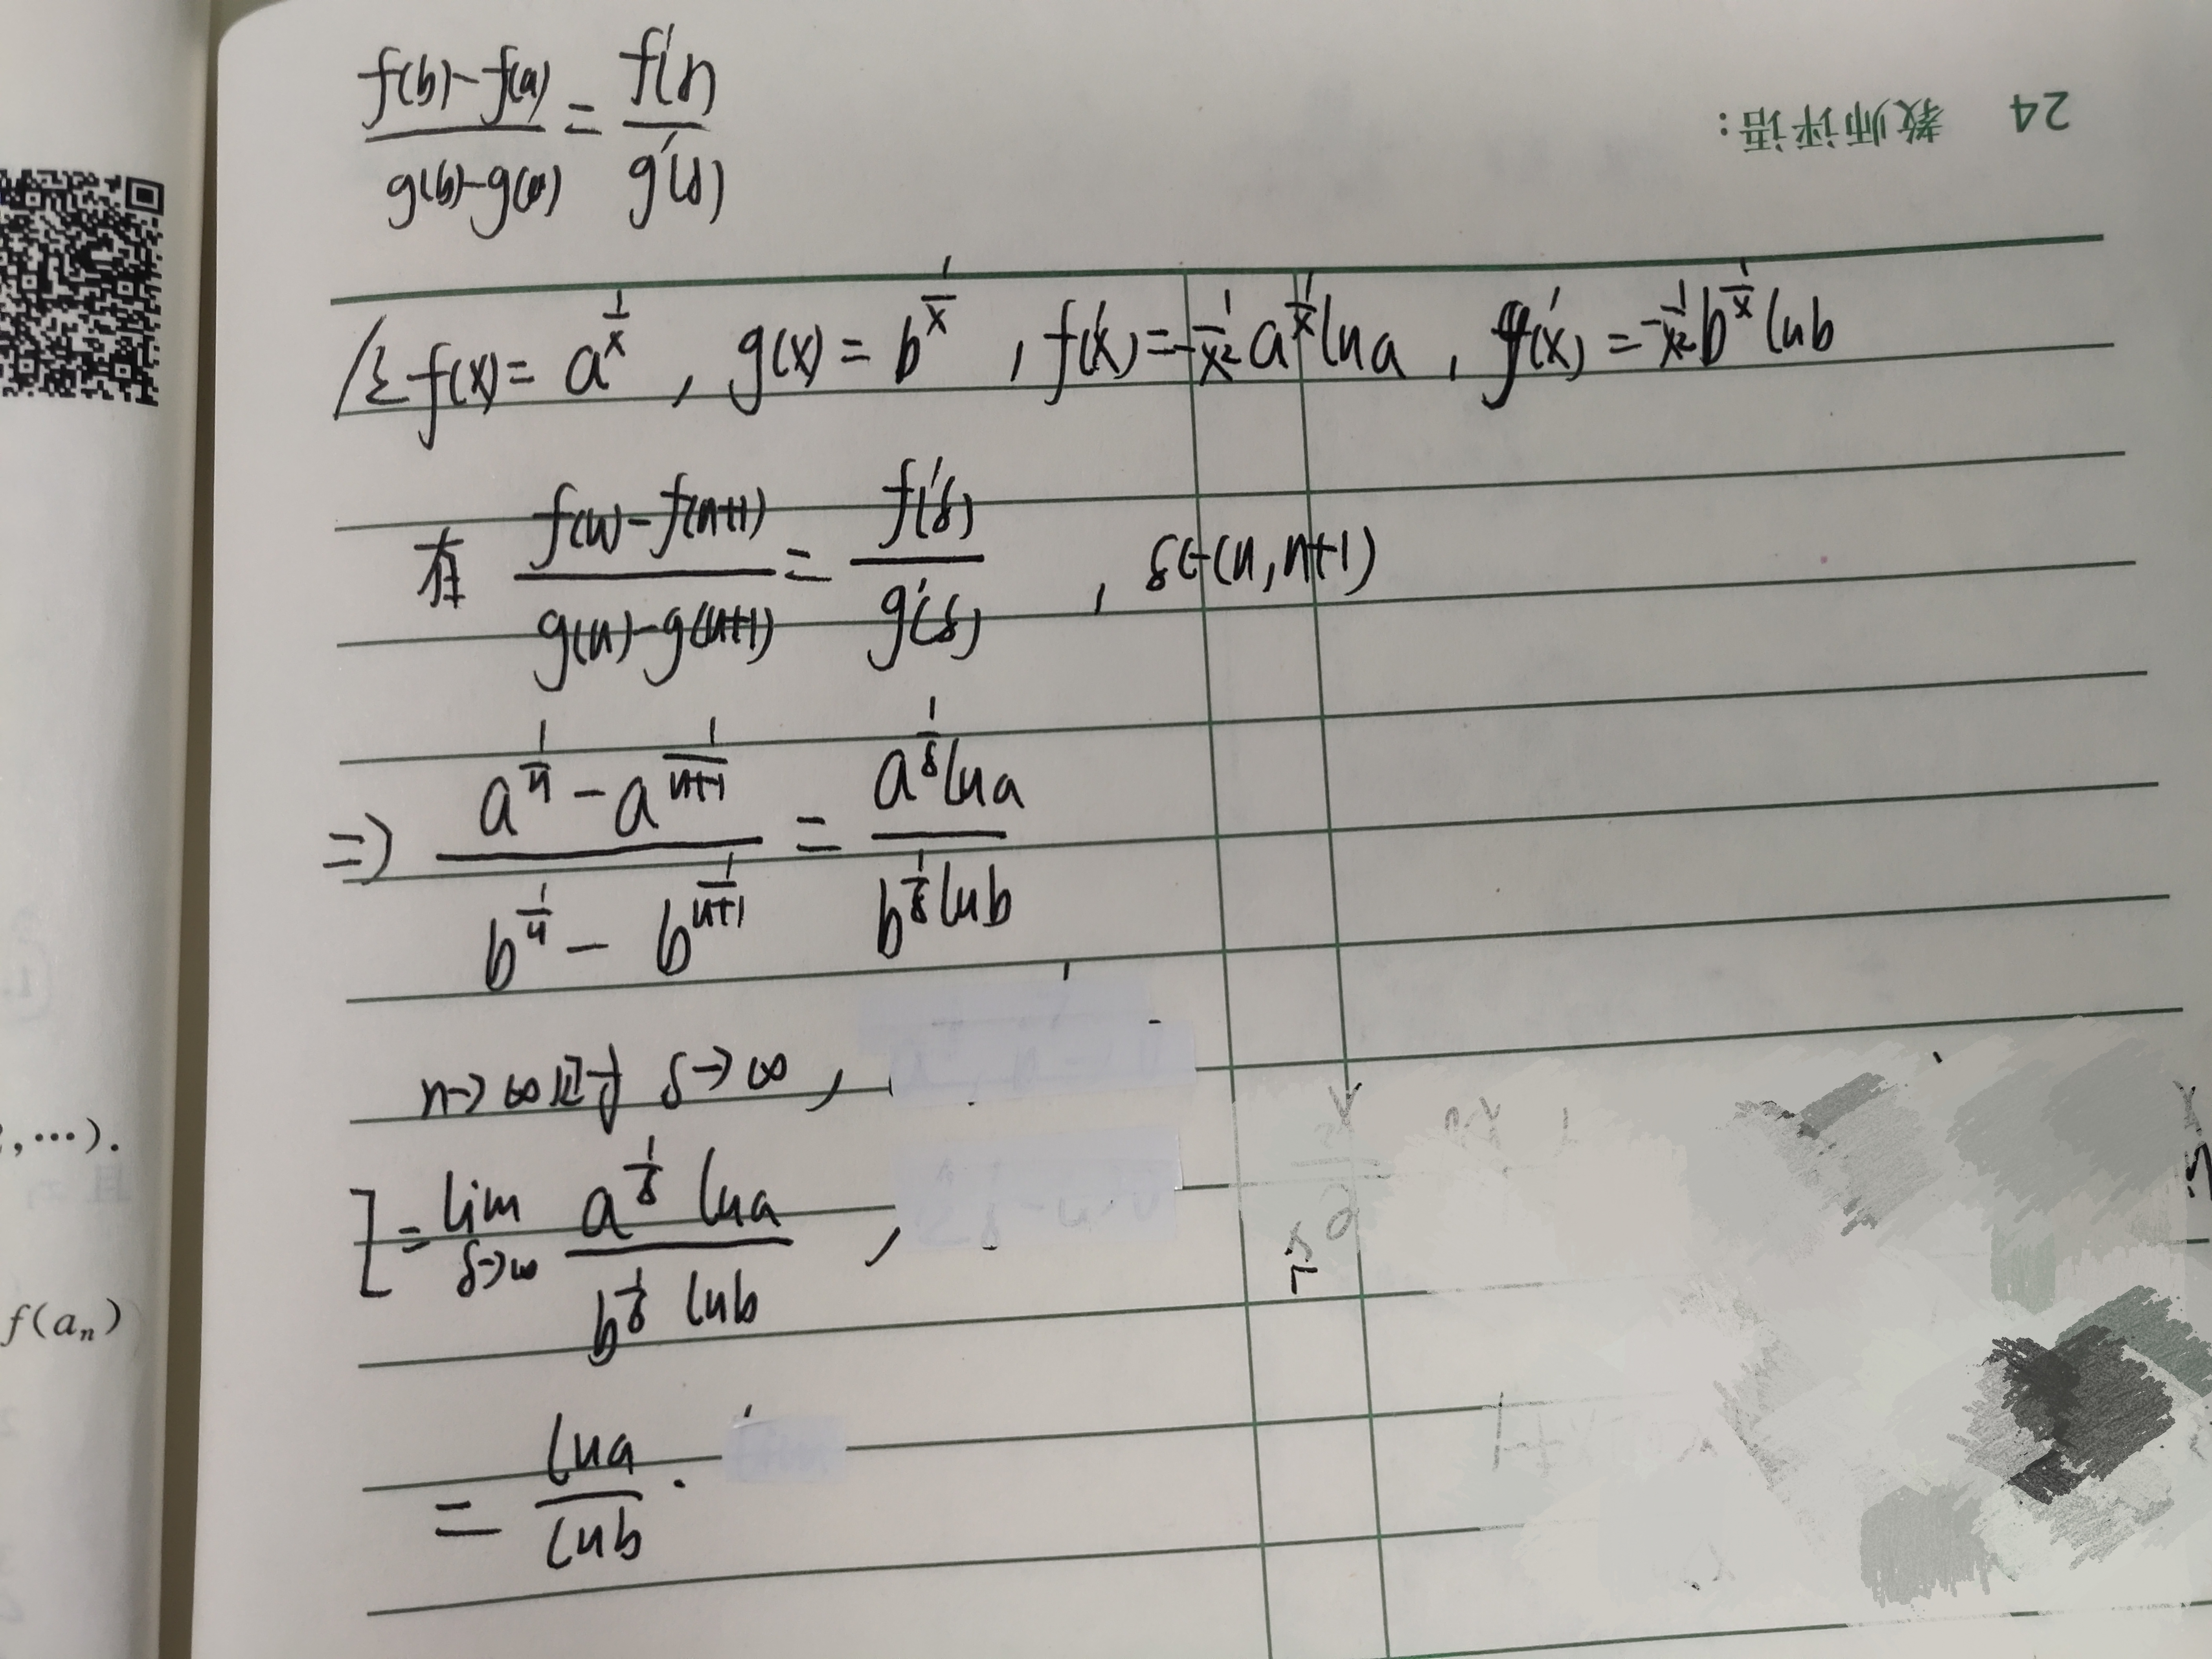 (f(b)-f(a))/(g(b)-g(a)) = f'(δ)/g'(δ)
24 教师评语:
设 f(x)= a^(1/x) , g(x)= b^(1/x) , f'(x)=-1/x² a^(1/x) lna , g'(x) =-1/x² b^(1/x) lnb
有 (f(n)-f(n+1))/(g(n)-g(n+1)) = f'(δ)/g'(δ) , δ∈(n,n+1)
=> (a^(1/n) - a^(1/(n+1)))/(b^(1/n) - b^(1/(n+1))) = (a^(1/δ) lna)/(b^(1/δ) lnb)
n→∞ δ→∞ ,
I = lim δ→∞ (a^(1/δ) lna)/(b^(1/δ) lnb) ,
= lna/lnb .
,…).
f(aₙ)